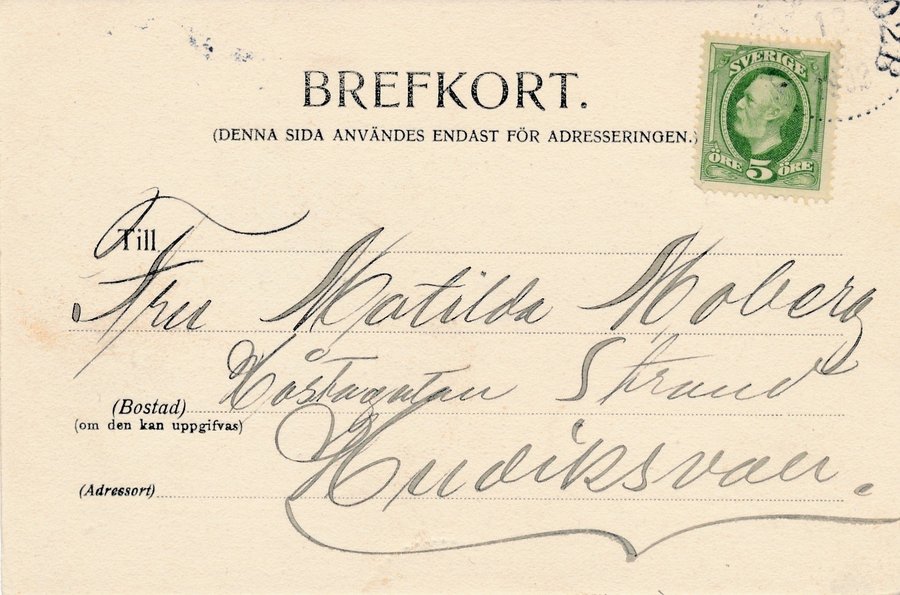 BREFKORT.
(DENNA SIDA ANVÄNDES ENDAST FÖR ADRESSERINGEN.)
SVERIGE
ÖRE 5 ÖRE
Till
Fru Matilda Moberg
Strand
(Bostad)
(om den kan uppgifvas)
Hudiksvall.
(Adressort)